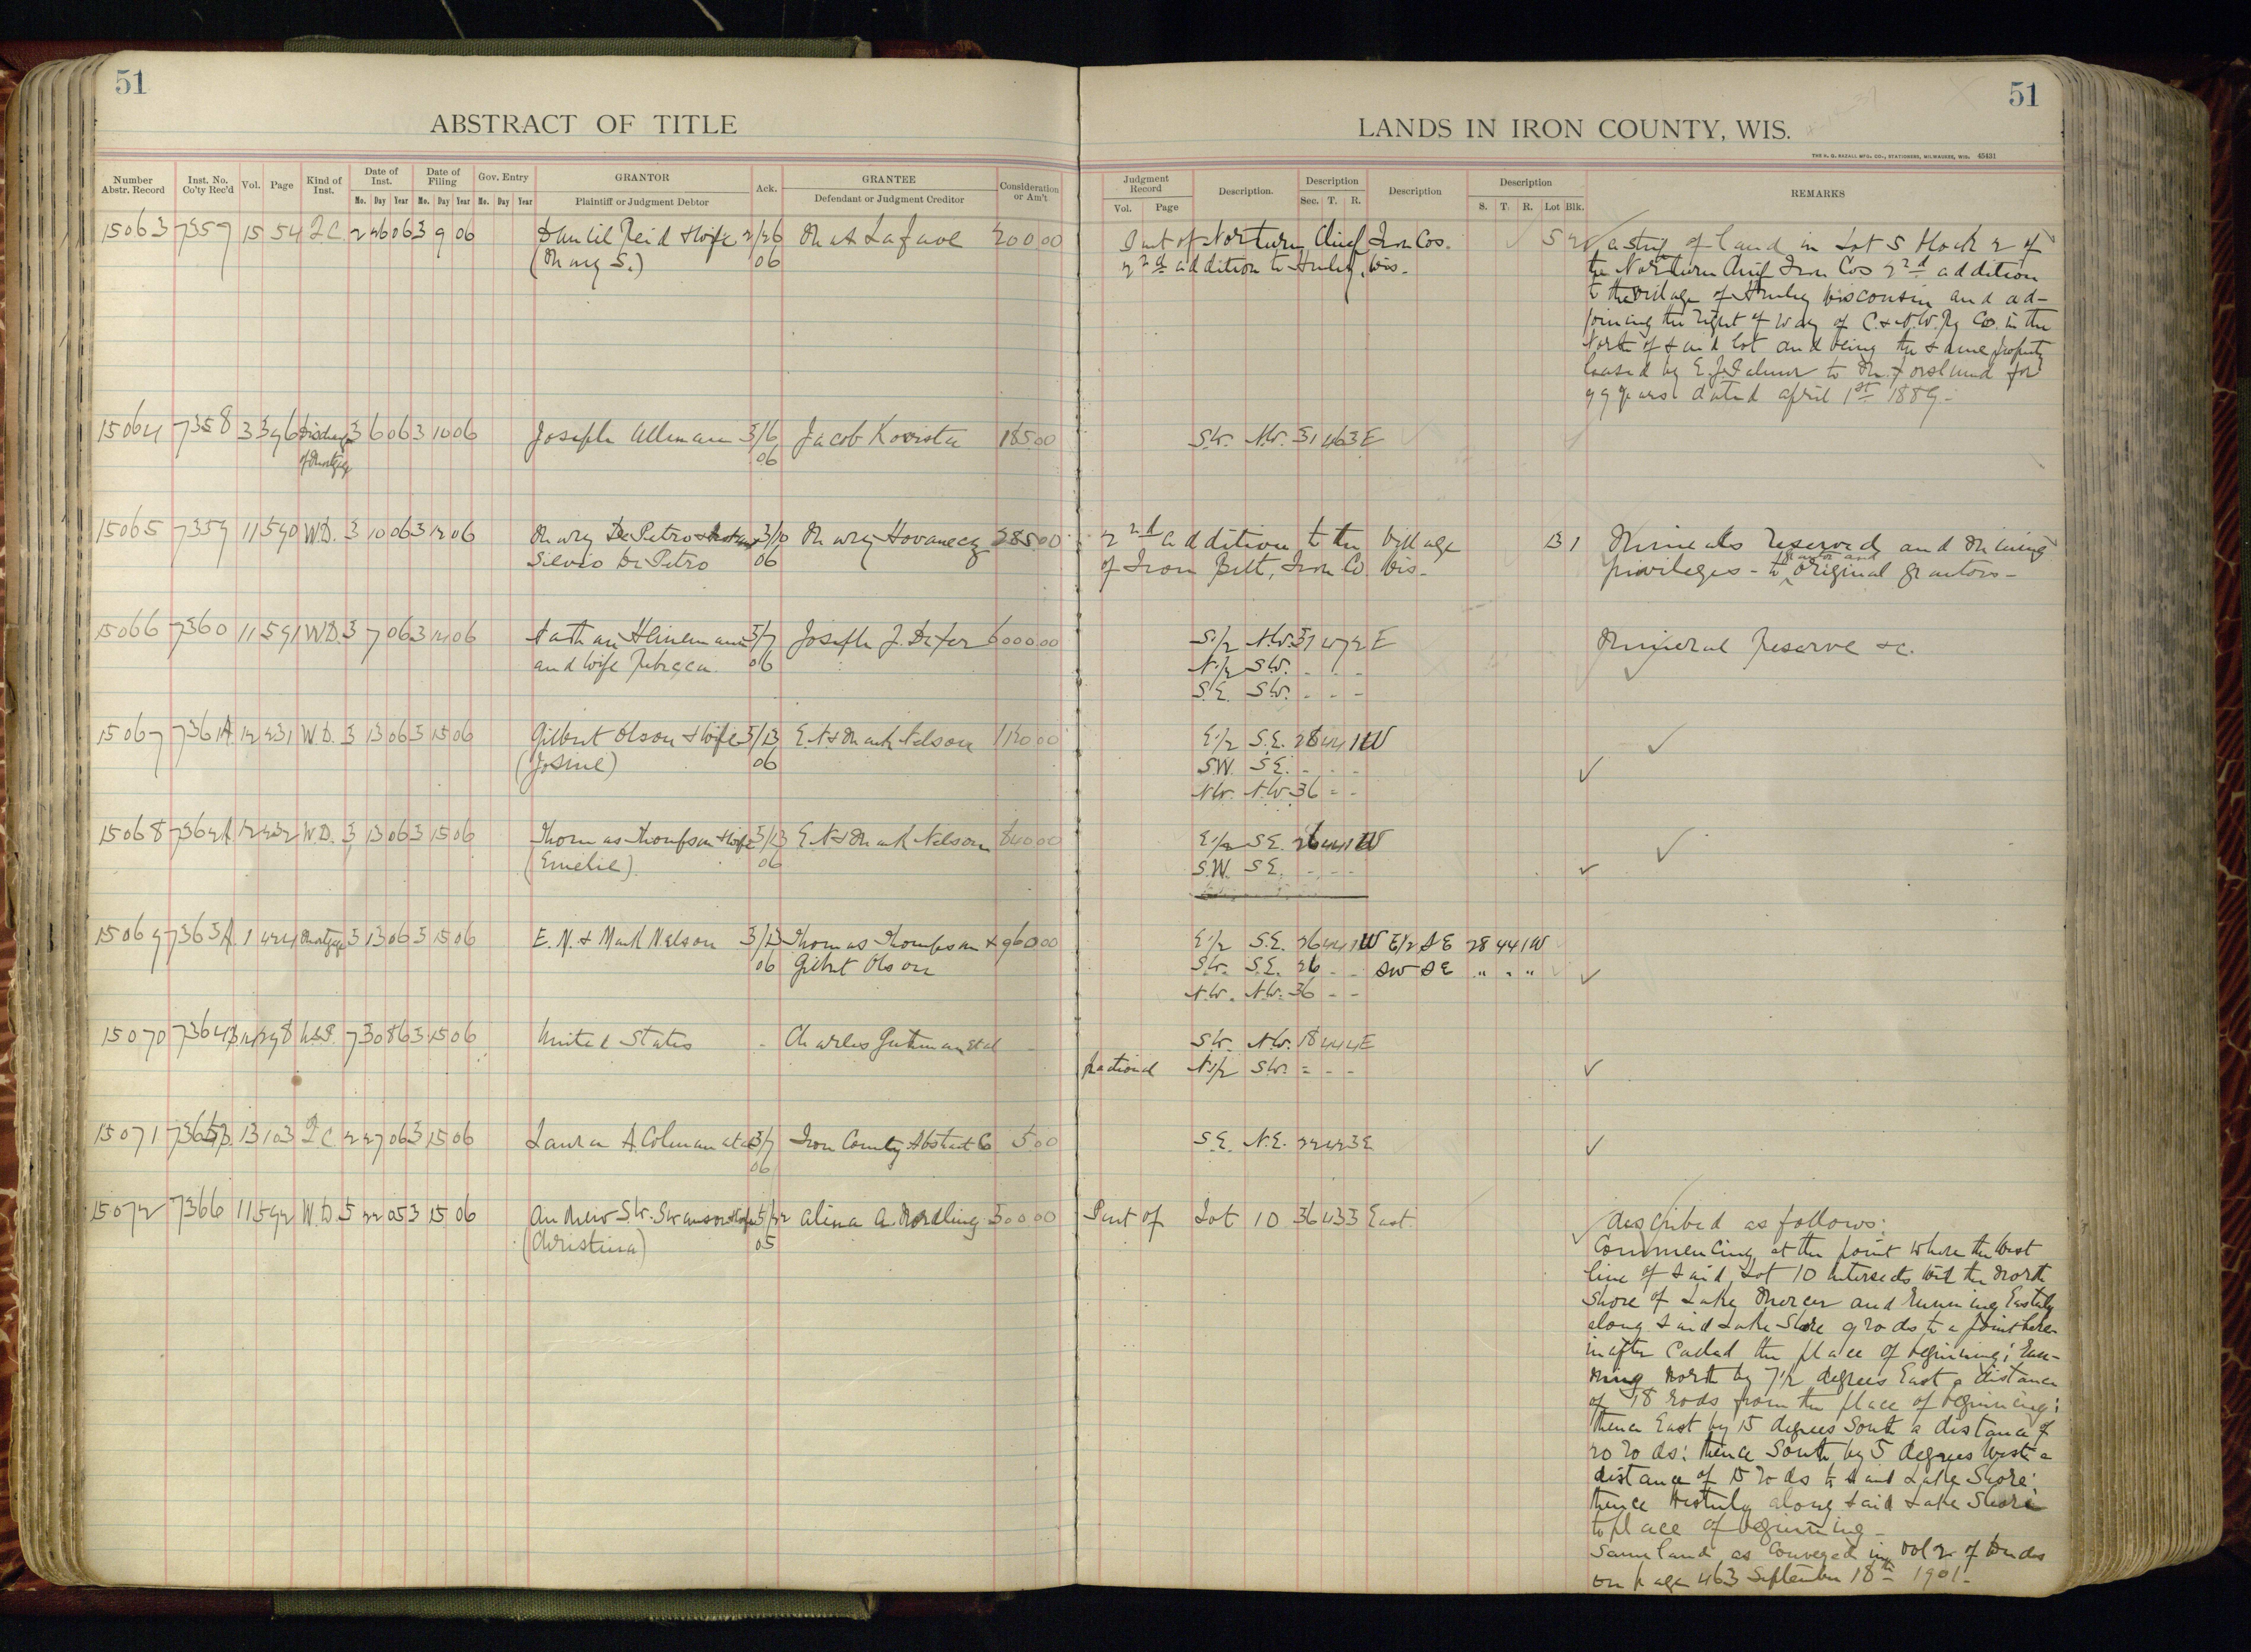 51
51
ABSTRACT OF TITLE
LANDS IN IRON COUNTY, WIS.
THE H. G. RAZALL MFG. CO., STATIONERS, MILWAUKEE, WIS. 45431
Number Abstr. Record Inst. No. Co'ty Rec'd Vol. Page Kind of Inst. Date of Inst. Mo. Day Year Date of Filing Mo. Day Year Gov. Entry Mo. Day Year GRANTOR Plaintiff or Judgment Debtor Ack. GRANTEE Defendant or Judgment Creditor Consideration or Am't
Judgment Record Vol. Page Description. Description Sec. T. R. Description Description S. T. R. Lot Blk. REMARKS
15063 7357 15 54 Q.C. 2 26 06 3 9 06 Daniel Reid & wife 2/26 Mat Lafave 200 00 Part of Northern Chief Iron Cos. 5 2 a strip of land in Lot 5 block 2 of
(Mary S.) 06 2nd addition to Hurley, Wis. the Northern Chief Iron Cos 2nd addition
to the village of Hurley Wisconsin and ad-
joining the right of way of C. & N.W. Ry Co. in the
North of said lot and being the same property
leased by E. J. to M. Forslund for
99 years dated april 1st 1889-
15064 7358 3 396 Discharge 3 6 06 3 10 06 Joseph Allman 3/6 Jacob Kovista 185 00 S.W. N.W. 31 46 3 E
of Mortgage 06
15065 7359 11 590 W.D. 3 10 06 3 12 06 Mary De Petro & husband 3/10 Mary Hovanecz 385 00 2nd addition to the village 13 1 Minerals reserved and Mining
Silvio De Petro 06 of Iron Belt, Iron Co. Wis- privileges - to grantor and original grantors-
15066 7360 11 591 W.D. 3 7 06 3 14 06 Nathan Heinemann 3/7 Joseph J. Defer 6000 00 S.1/2 N.W. 31 47 2 E Mineral Reserve &c.
and wife Rebecca. 06 N.1/2 S.W. - - -
S.E. S.W. - - -
15067 7361A 12 231 W.D. 3 13 06 3 15 06 Gilbert Olson & wife 3/13 E. N & Mark Nelson 1120 00 E.1/2 S.E. 28 44 1 W
(Josine) 06 S.W. S.E. - - -
N.W. N.W. 36 - -
15068 7362A 12 232 W.D. 3 13 06 3 15 06 Thomas Thompson & wife 3/13 E. N & Mark Nelson 840 00 E.1/2 S.E. 26 44 1 W
(Emelie) 06 S.W. S.E. - - -
15069 7363A 1 424 Mortgage 3 13 06 3 15 06 E. N. & Mark Nelson 3/13 Thomas Thompson & 960 00 E.1/2 S.E. 26 44 1 W E1/2 SE 28 44 1 W
06 Gilbert Olson S.W. S.E. 26 - - SW SE " " "
N.W. N.W. 36 - -
15070 7364 298 U.S.P. 7 30 86 3 15 06 United States - Charles Gutman et al - S.W. N.W. 18 44 4 E
fractional N.1/2 S.W. - - -
15071 7365 13 103 Q.C. 2 27 06 3 15 06 Laura A. Colman et al 3/7 Iron County Abstract Co 5 00 S.E. N.E. 22 42 3 E
06
15072 7366 11 592 W.D. 5 22 05 3 15 06 Andrew S.W. Swanson & wife 5/22 Alina A. Nordling 300 00 Part of Lot 10 36 43 3 East. described as follows:
(Christina) 05 Commencing at the point where the West
line of said Lot 10 intersects with the North
Shore of Lake Mercer and running Easterly
along said Lake Shore 9 rods to a point here-
inafter called the place of beginning; run-
ning North by 7 1/2 degrees East a distance
of 18 rods from the place of beginning;
thence East by 15 degrees South a distance of
20 rods; thence South by 5 degrees West a
distance of 15 rods to said Lake Shore;
thence Westerly along said Lake Shore
to place of beginning-
Same land as conveyed in Vol 2 of Deeds
on page 463 September 18th 1901-